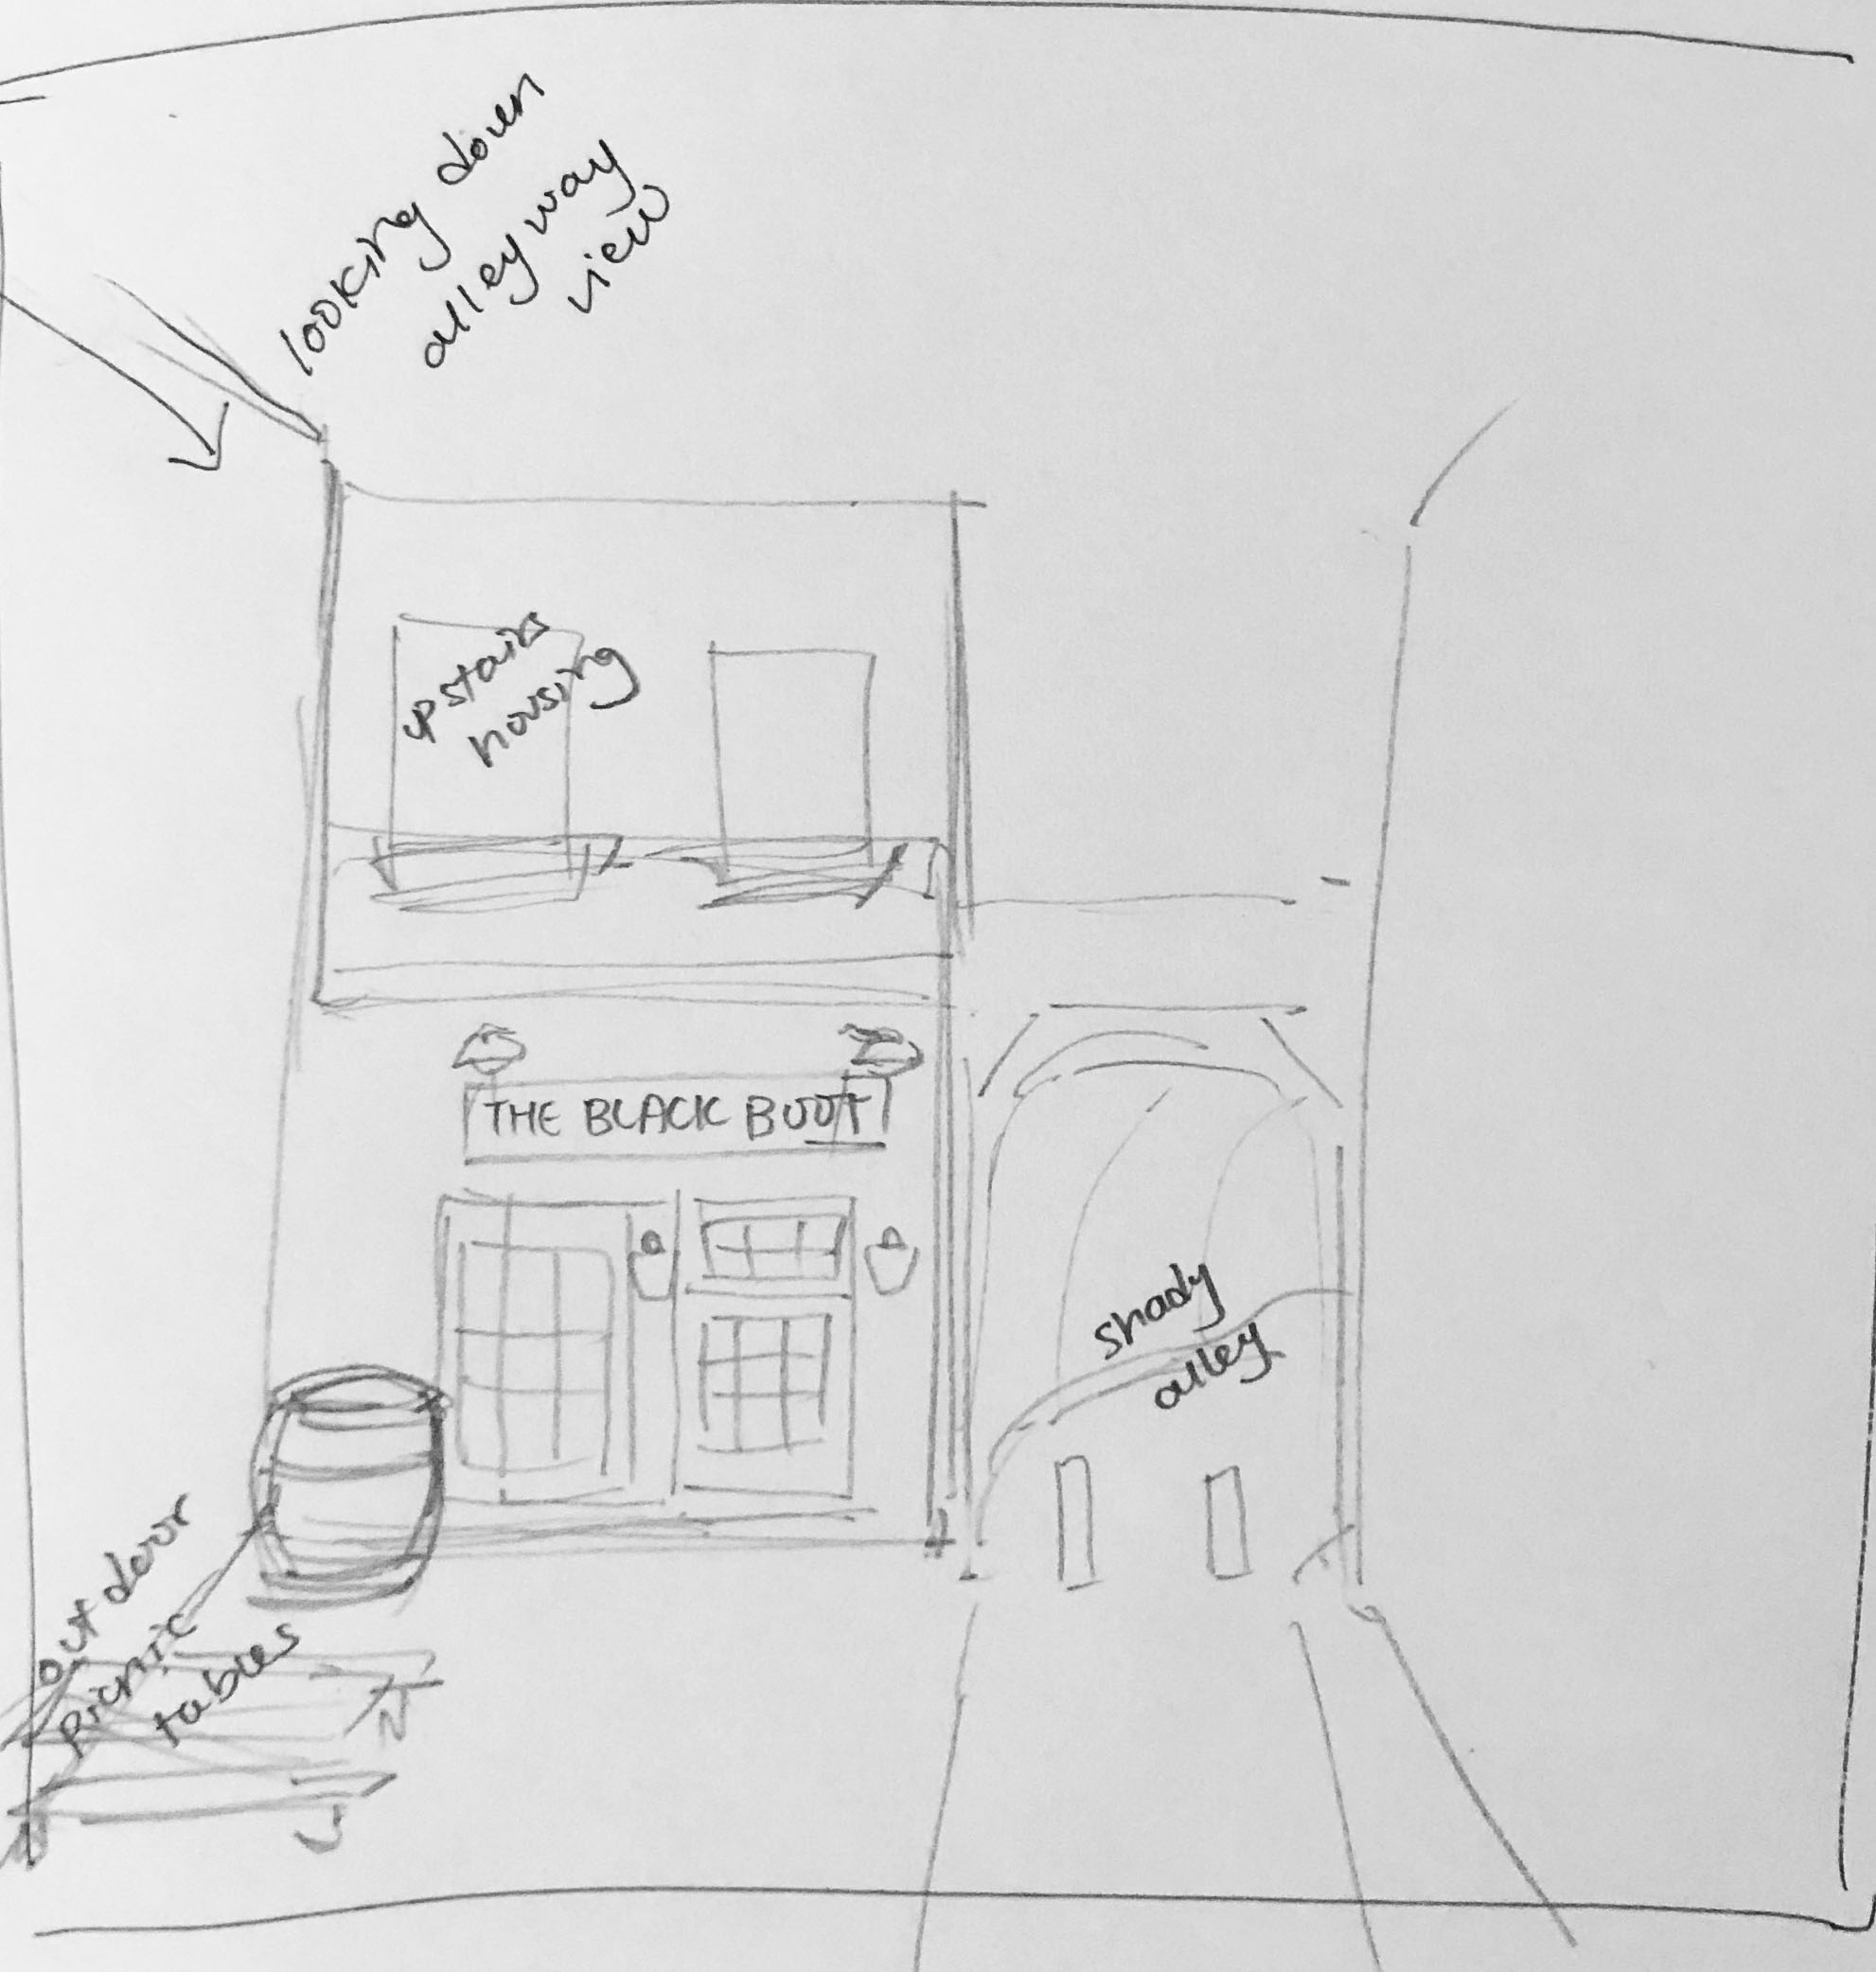 looking down
alleyway
view
upstairs
housing
THE BLACK BOOT
shady
alley
outdoor
picnic
tables